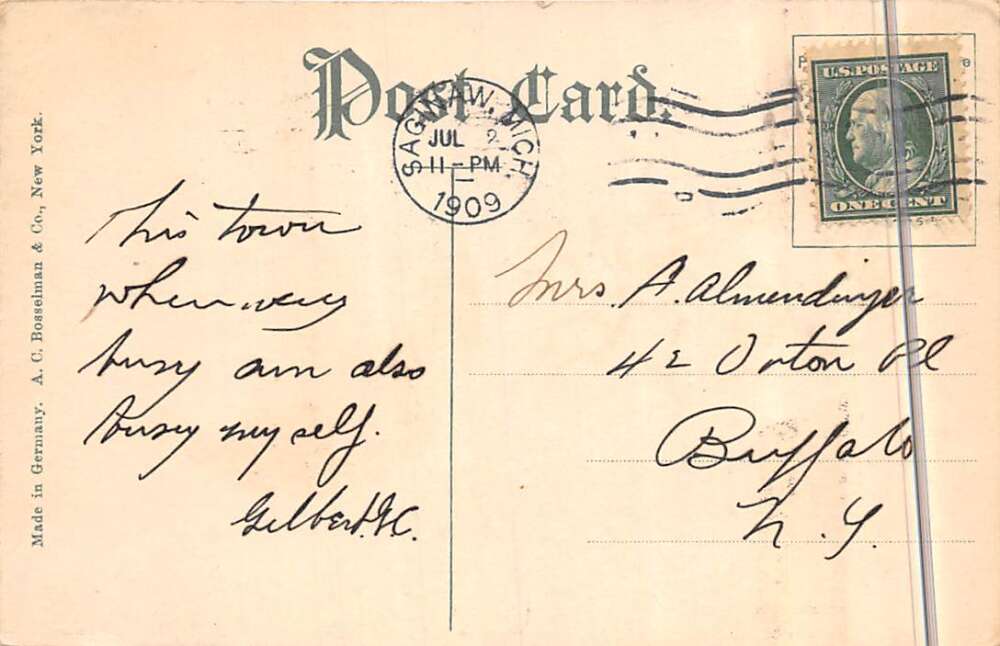 Post Card.
SAGINAW, MICH.
JUL 2
11-PM
1909
U.S. POSTAGE
ONE CENT
Made in Germany. A. C. Bosselman & Co., New York.
This town
when very
busy am also
busy myself.
Gilbert. G.C.
Mrs. A. Almendinger
42 Orton Pl
Buffalo
N.Y.